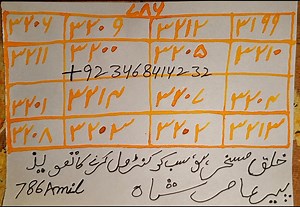 ۷۸۶
۳۲۰۶ ۳۲۰۹ ۳۲۱۲ ۳۱۹۹
۳۲۱۱ ۳۲۰۰ ۳۲۰۵ ۳۲۱۰
+923468414232
۳۲۰۱ ۳۲۱۴ ۳۲۰۷ ۳۲۰۴
۳۲۰۸ ۳۲۰۳ ۳۲۰۲ ۳۲۱۳
خلق مسخر ہو سب کو کنٹرول کرنے کا تعویذ
پیر شاہ
786 Amil